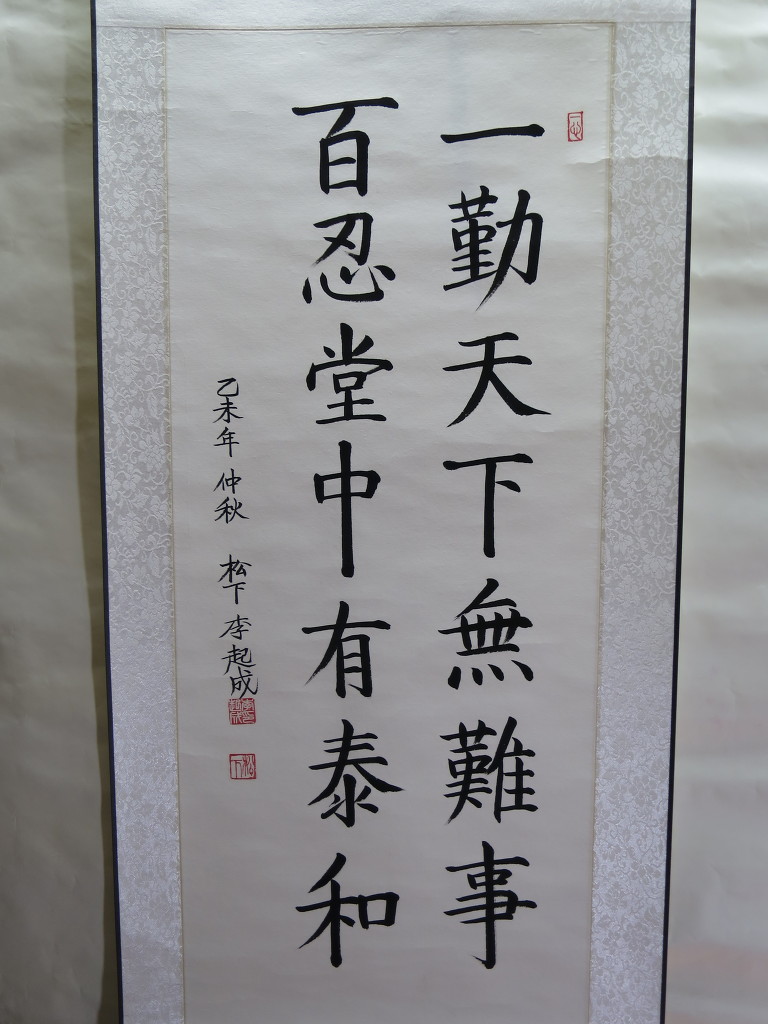 一勤天下無難事
百忍堂中有泰和
乙未年 仲秋 松下 李起成
松下